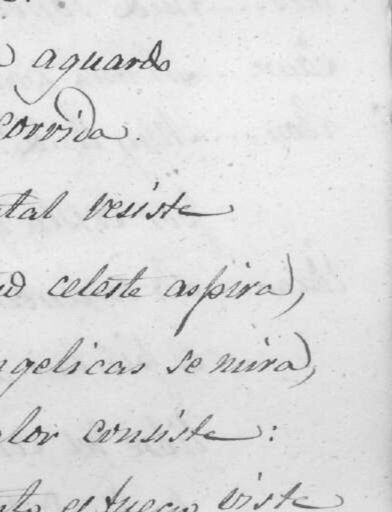 aguardo
corrida.
tal resiste
ud celeste aspira,
ngelicas se mira,
lor consiste:
viste